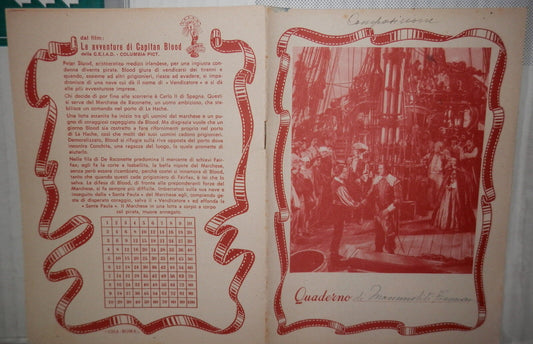 dal film:
Le avventure di Capitan Blood
della C.E.I.A.D. - COLUMBIA PICT.
Peter Blood, aristocratico medico irlandese, per una ingiusta condanna diventa pirata. Blood giura di vendicarsi dei tiranni e quando, assieme ad altri prigionieri, riesce ad evadere, si impadronisce di una nave cui dà il nome di « Vendicatore » e si dà alle più avventurose imprese.
Chi decide di por fine alla scorreria è Carlo II di Spagna. Questi si serve del Marchese de Raconette, un uomo ambizioso, che stabilisce un comando nel porto di La Hache.
Una lotta accanita ha inizio tra gli uomini del marchese e un pugno di coraggiosi capeggiato da Blood. Ma disgrazia vuole che un giorno Blood sia costretto a fare rifornimenti proprio nel porto di La Hache, così che molti dei suoi uomini cadono prigionieri. Demoralizzato, Blood si rifugia sulla riva opposta del porto dove incontra Conchita, una ragazza del luogo, la quale promette di aiutarlo.
Nelle fila di De Raconette predomina il mercante di schiavi Fairfax; egli fa la corte a Isabelita, la bella nipote del Marchese, senza però essere ricambiato, perchè costei si innamora di Blood, tanto che quando questi cade prigioniero di Fairfax, è lei che lo salva. La difesa di Blood, di fronte alle preponderanti forze del Marchese, si fa sempre più difficile. Imbarcatosi sulla sua nave e inseguito dalla « Santa Paula » del Marchese egli, compiendo gesta di disperato coraggio, salva il « Vendicatore » ed affonda la « Santa Paula ». Il Marchese in una lotta a corpo a corpo col pirata, muore annegato.
1 2 3 4 5 6 7 8 9 10
2 4 6 8 10 12 14 16 18 20
3 6 9 12 15 18 21 24 27 30
4 8 12 16 20 24 28 32 36 40
5 10 15 20 25 30 35 40 45 50
6 12 18 24 30 36 42 48 54 60
7 14 21 28 35 42 49 56 63 70
8 16 24 32 40 48 56 64 72 80
9 18 27 36 45 54 63 72 81 90
10 20 30 40 50 60 70 80 90 100
Composizione
Quaderno di